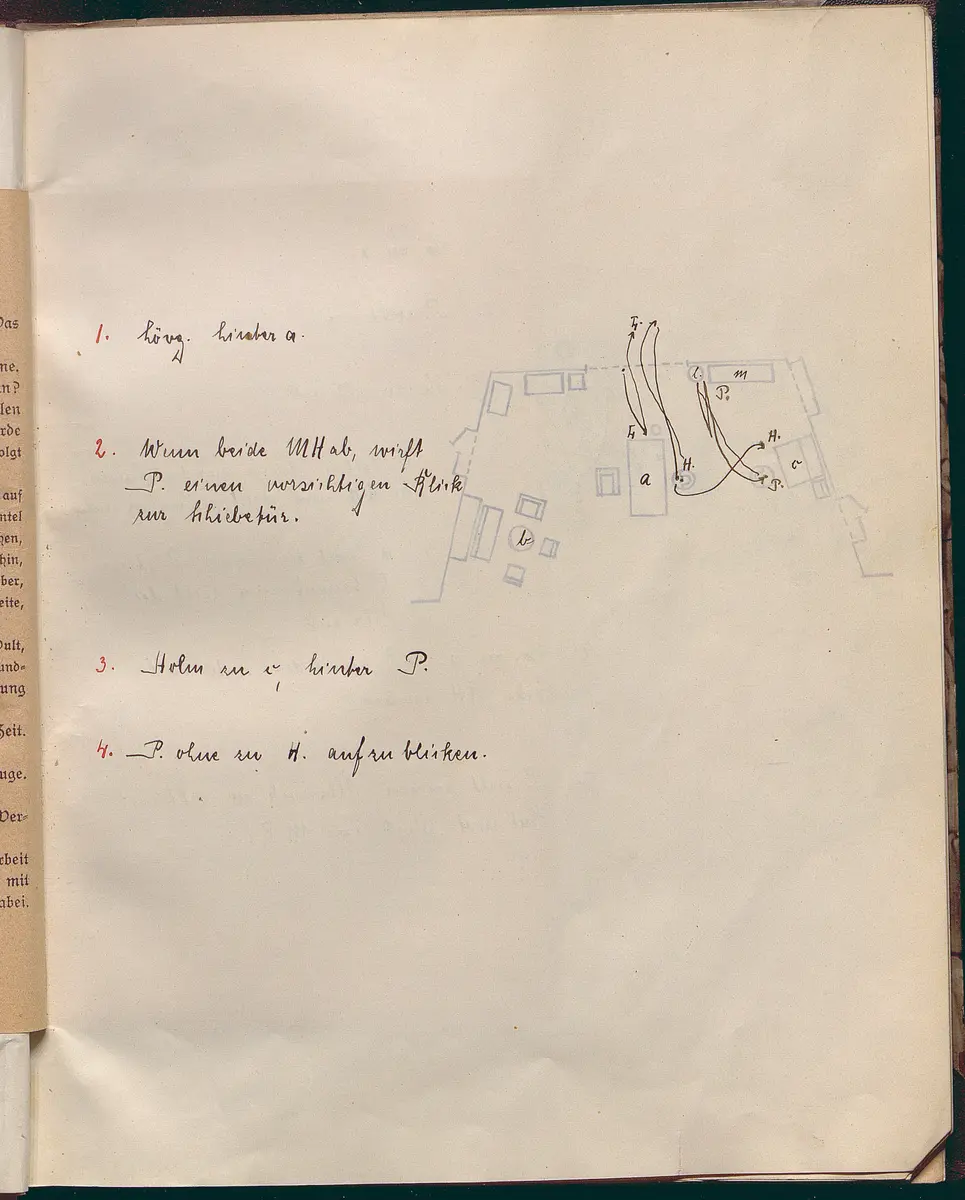 Das
ne.
n?
len
rde
olgt
auf
ntel
hen,
hin,
ber,
eite,
Pult,
und=
ung
Zeit.
uge.
Ver=
rbeit
mit
abei.
1. hinter a.
2. Wenn beide MH ab, wirft
P. einen vorsichtigen Blick
zur Schiebetür.
3. Holm zu c, hinter P.
4. P. ohne zu H. aufzublicken.
l. m
P.
H.
a H. c
P.
b